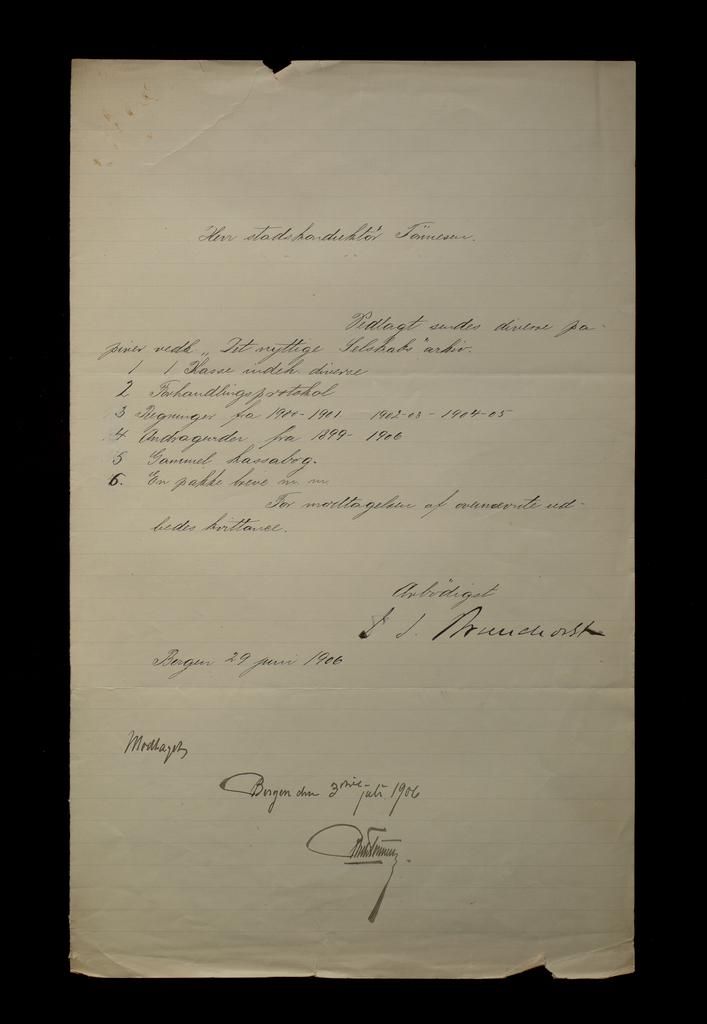 Herr stadskonduktör Tönnesen.
Vedlagt sendes diverse pa-
pirer vedk. „Det nyttige Selskabs" arkiv.
1 1 Kasse indeh. diverse
2 Forhandlingsprotokol
3 Regninger fra 1900-1901 1902-03-1904-05
4 Andragender fra 1899-1906
5 Gammel kassabog.
6. En pakke breve m. m.
For modtagelsen af ovennævnte ud-
bedes kvittance.
Ärbödigst
J. Brunchorst
Bergen 29 juni 1906
Modtaget
Bergen den 3die juli 1906